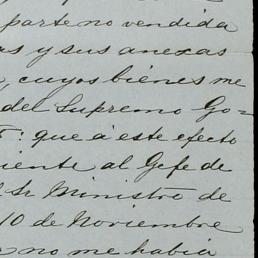 parte no vendida
as y sus anexas
, cuyos bienes me
del Supremo Go=
: que á este efecto
iente al Gefe de
l Sr Ministro de
10 de Noviembre
no me habia